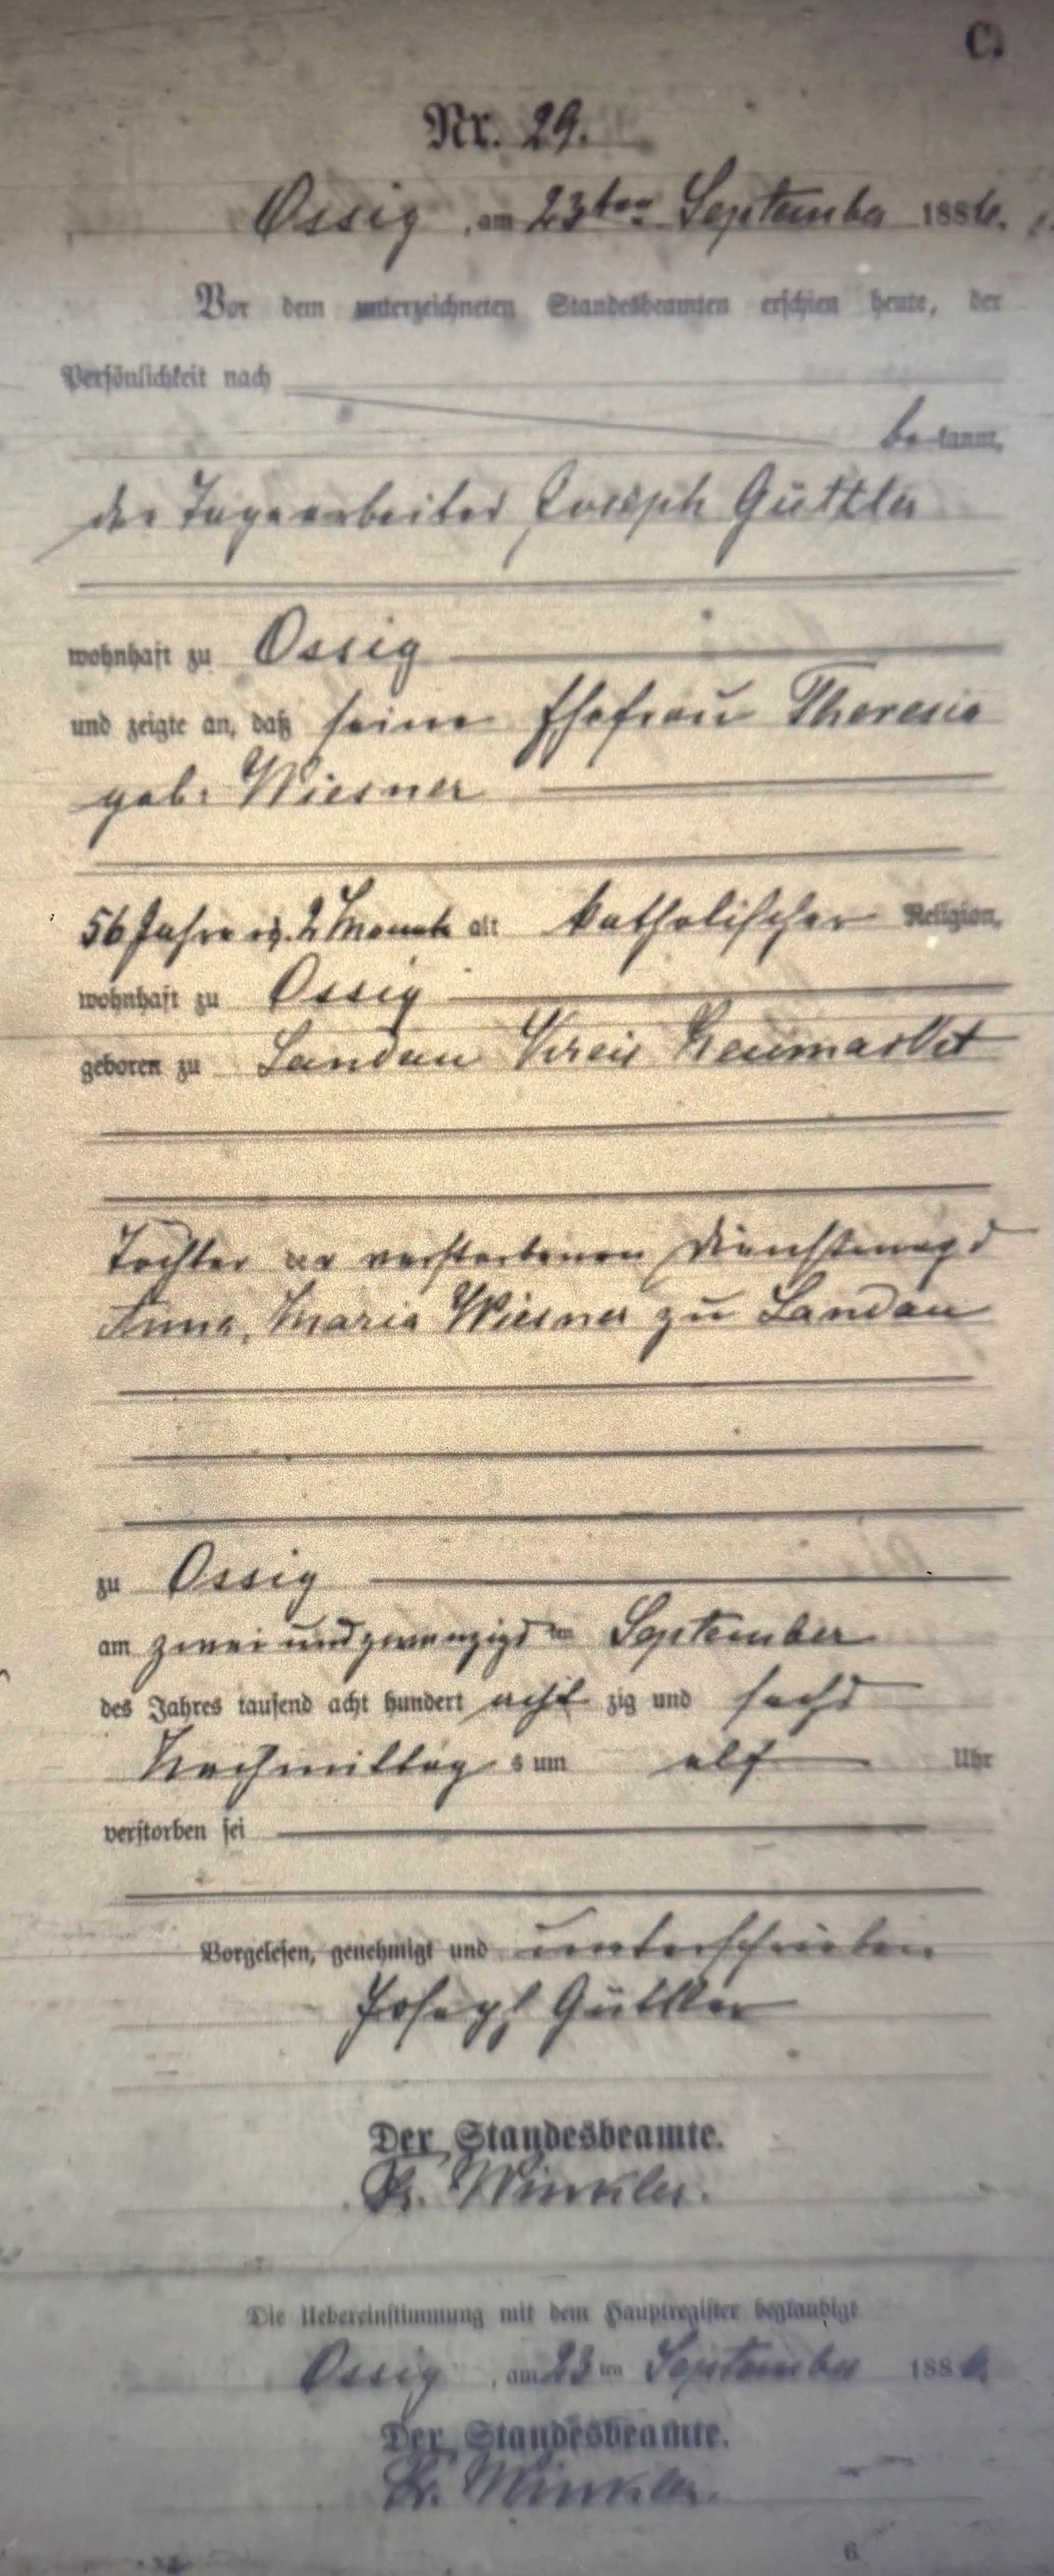 C.
Nr. 29.
Ossig, am 23ten September 1886.
Vor dem unterzeichneten Standesbeamten erschien heute, der
Persönlichkeit nach
bekannt,
der Tagearbeiter Joseph Güttler
wohnhaft zu Ossig
und zeigte an, daß seine Ehefrau Theresia
geb. Wiesner
56 Jahre u. 2 Monate alt katholischer Religion,
wohnhaft zu Ossig
geboren zu Landau Kreis Neumarkt
Tochter der verstorbenen Dienstmagd
Anna, Maria Wiesner zu Landau
zu Ossig
am zwei und zwanzigsten September
des Jahres tausend acht hundert acht zig und sechs
Nachmittags um elf Uhr
verstorben sei
Vorgelesen, genehmigt und unterschrieben
Joseph Güttler
Der Standesbeamte.
Winkler.
Die Uebereinstimmung mit dem Hauptregister beglaubigt
Ossig, am 23ten September 1886.
Der Standesbeamte.
Winkler.
6